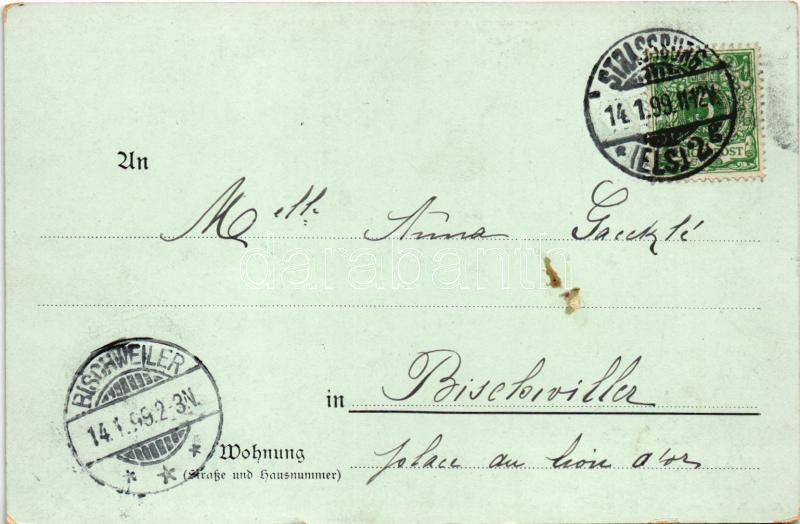 STRASSBURG
14.1.99.11-12V.
* (ELS) 2 g
POST
An
Melle Anna Gaecklé
darabanth
BISCHWEILER
14.1.99.2-3N.
* * *
in Bischwiller
Wohnung
(Straße und Hausnummer)
place au lion d'or